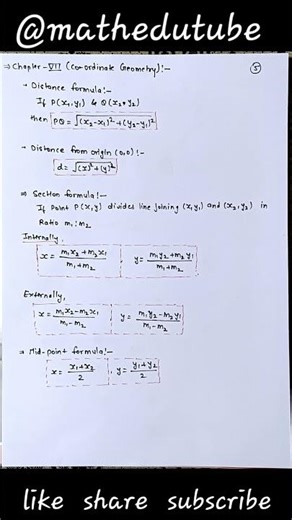 @mathedutube
⇒ Chapter-VII (Co-ordinate Geometry):-
5
→ Distance formula:-
If P(x₁,y₁) & Q(x₂,y₂)
then PQ = √(x₂-x₁)²+(y₂-y₁)²
→ Distance from origin (0,0):-
d = √(x)²+(y)²
⇒ Section formula:-
If point P(x,y) divides line joining (x₁,y₁) and (x₂,y₂) in
Ratio m₁:m₂
Internally,
x = (m₁x₂+m₂x₁)/(m₁+m₂) y = (m₁y₂+m₂y₁)/(m₁+m₂)
Externally,
x = (m₁x₂-m₂x₁)/(m₁-m₂) y = (m₁y₂-m₂y₁)/(m₁-m₂)
⇒ Mid-point formula:-
x = (x₁+x₂)/2 , y = (y₁+y₂)/2
like share subscribe